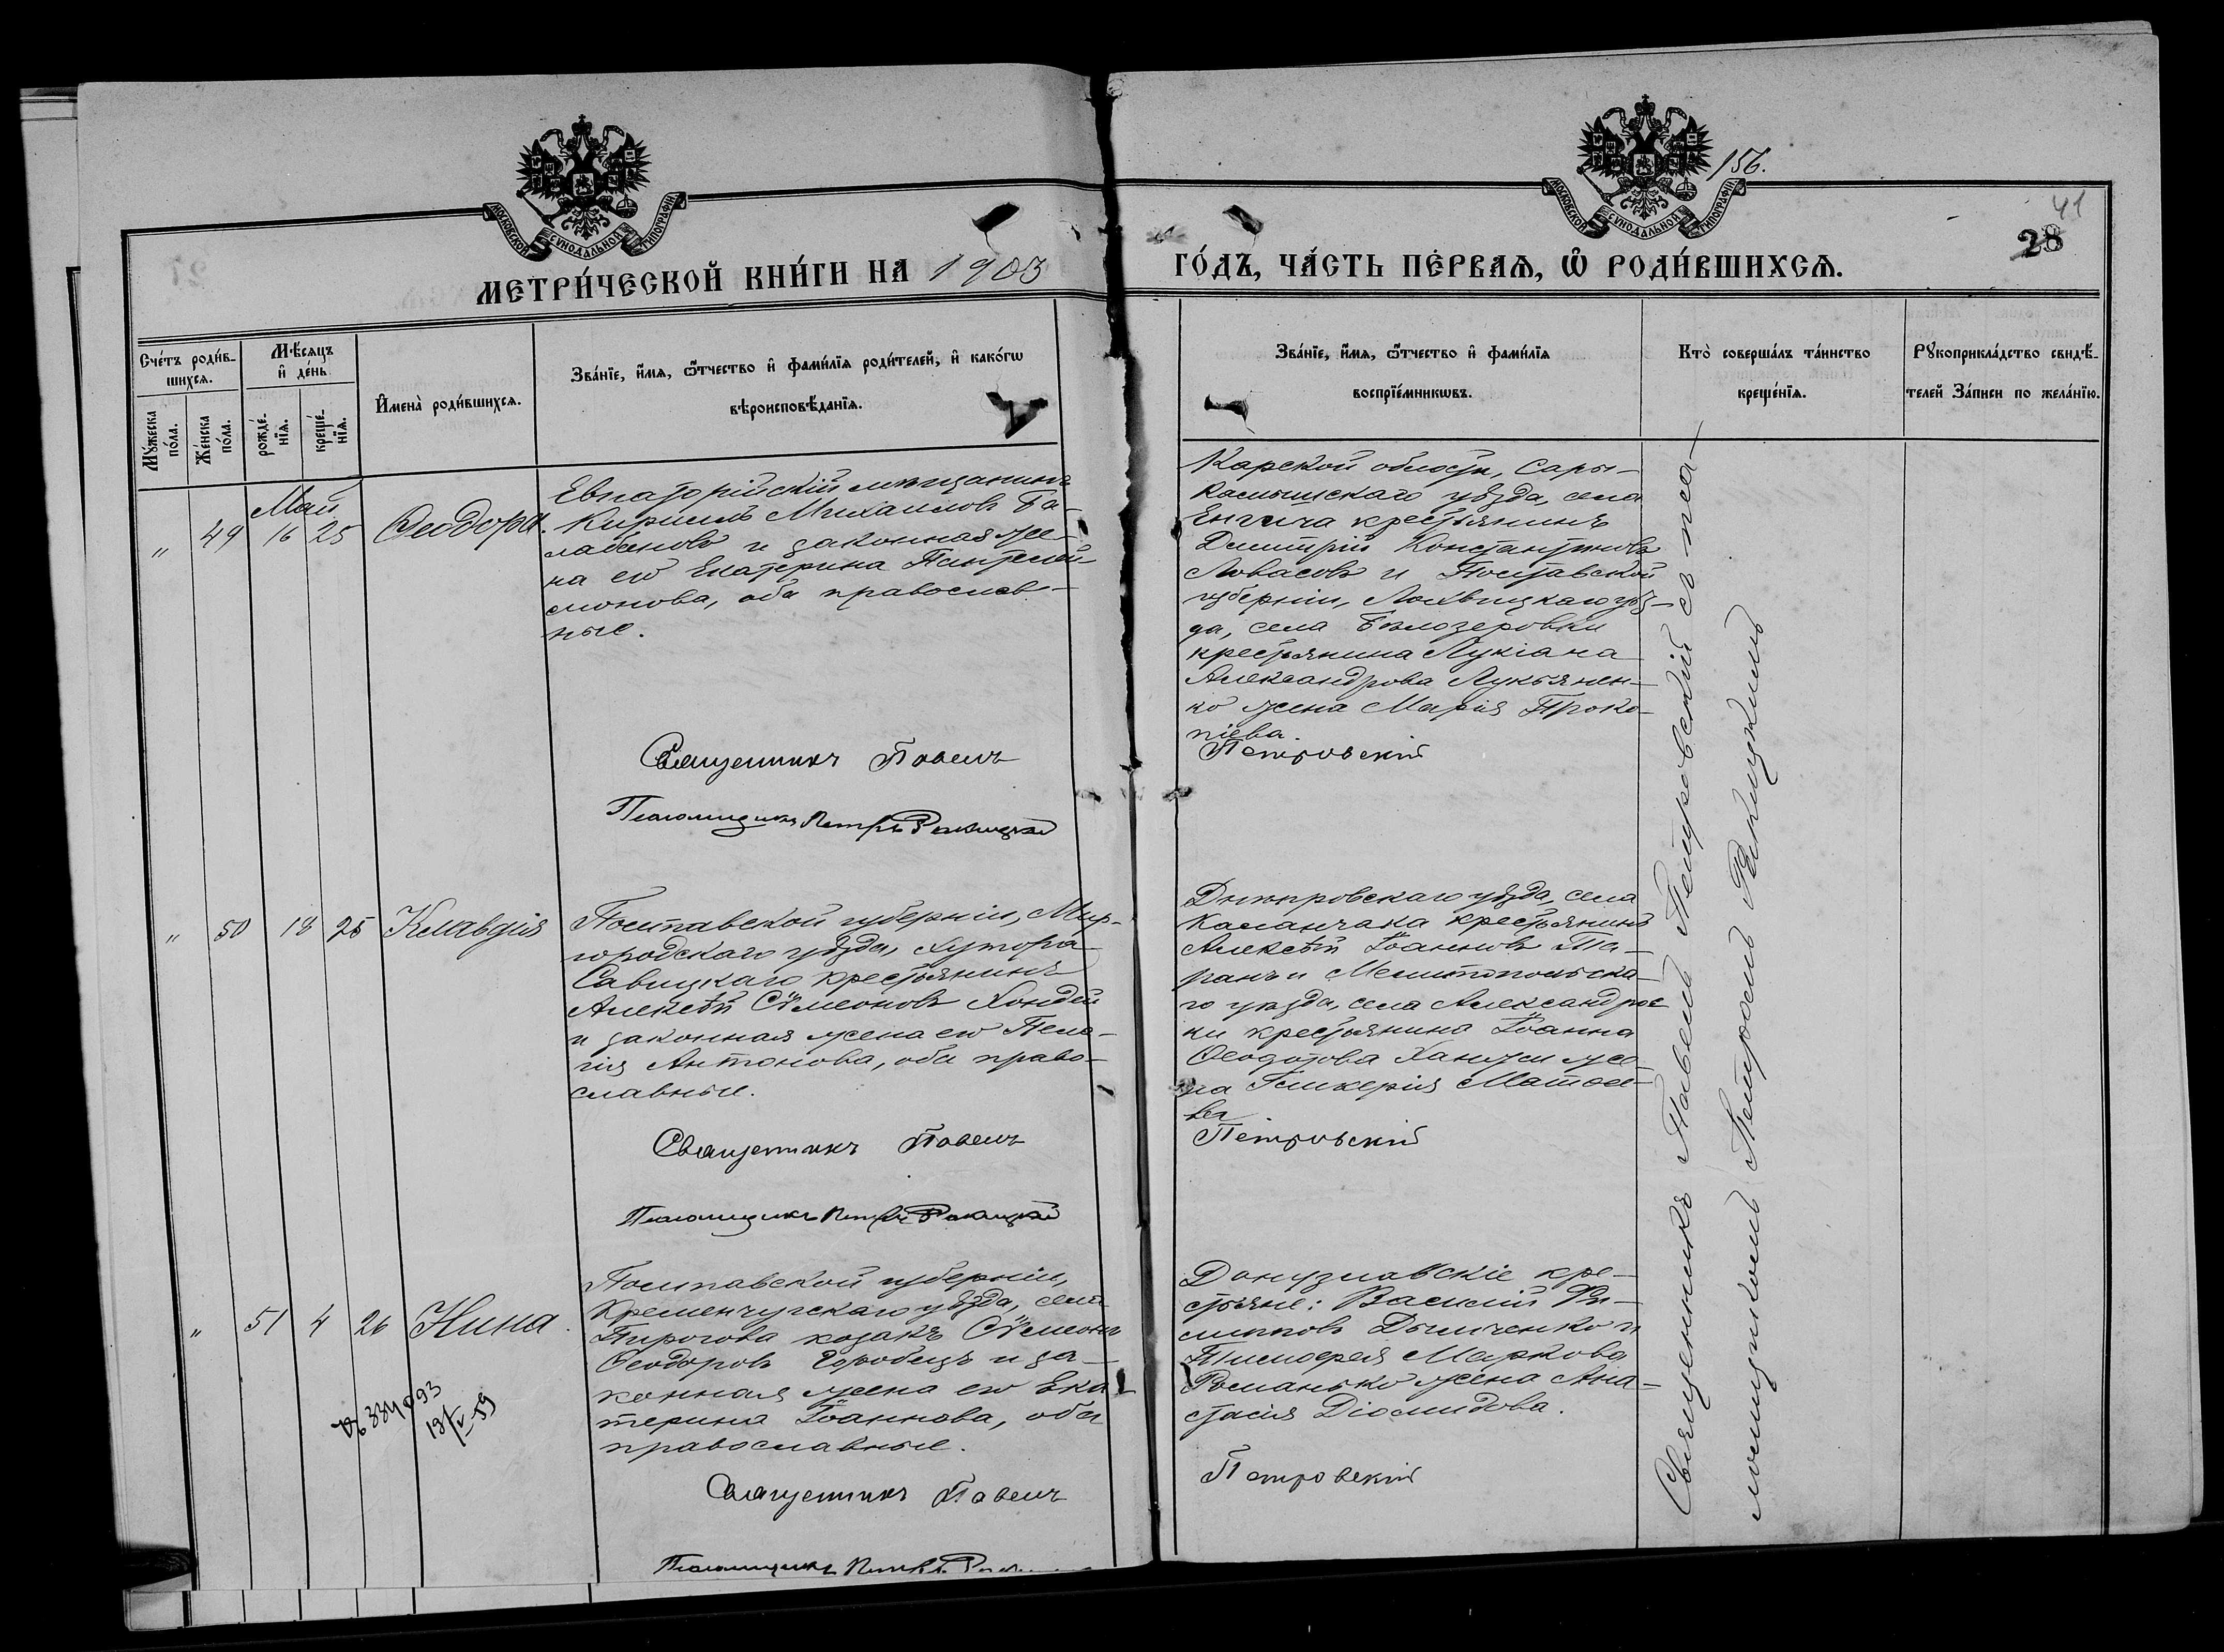 МОСКОВСКОЙ СУНОДАЛЬНОЙ ТИПОГРАФІИ
МОСКОВСКОЙ СУНОДАЛЬНОЙ ТИПОГРАФІИ
156.
41
28
МЕТРИ́ЧЕСКОЙ КНИ́ГИ НА 1903
ГО́ДЪ, ЧА́СТЬ ПЕ́РВАЯ, Ѽ РОДИ́ВШИХСЯ.
Сче́тъ роди́в-
шихся.
Му́жеска
по́ла.
Же́нска
по́ла.
Мѣ́сяцъ
и҆ де́нь
рожде́-
нїя.
креще́-
нїя.
И҆мена̀ роди́вшихся.
Зва́нїе, и҆́мя, ѻ҆́тчество и҆ фами́лїя роди́телей, и҆ како́гѡ
вѣроисповѣ́данїя.
Зва́нїе, и҆́мя, ѻ҆́тчество и҆ фами́лїя
воспрїе́мникѡвъ.
Кто̀ соверша́лъ та́инство
креще́нїя.
Рꙋкоприкла́дство свидѣ́-
телей За́писи по жела́нїю.
Май
" 49 16 25 Ѳеодора.
Евпаторійскій мѣщанинъ
Кириллъ Михаиловъ Ба-
лабановъ и законная же-
на его Екатерина Пантелей-
монова, оба православ-
ные.
Священникъ Павелъ
Псаломщикъ Петръ Ракицкій
Карской области, Сары-
камышскаго уѣзда, села
Енгича крестьянинъ
Димитрій Константиновъ
Ловасовъ и Полтавской
губерніи, Лохвицкаго уѣз-
да, села Бѣлозеровки
крестьянина Лукіана
Александрова Лукьянен-
ко жена Марія Проко-
піева.
Петровскій
" 50 18 25 Клавдія
Полтавской губерніи, Мир-
городскаго уѣзда, хутора
Савицкаго крестьянинъ
Алексѣй Сѵмеоновъ Хондей
и законная жена его Пела-
гія Антонова, оба право-
славные.
Священникъ Павелъ
Псаломщикъ Петръ Ракицкій
Днѣпровскаго уѣзда, села
Каланчака крестьянинъ
Алексѣй Іоанновъ Та-
ранъ и Мелитопольска-
го уѣзда, села Александров
ки крестьянина Іоанна
Ѳеодотова Ханжи же-
на Гликерія Матѳее-
ва
Петровскій
" 51 4 26 Нина.
13/V-59
Полтавской губерніи,
Кременчугскаго уѣзда, села
Пирогова козакъ Сѵмеонъ
Ѳеодоровъ Горобецъ и за-
конная жена его Ека-
терина Іоаннова, оба
православные.
Священникъ Павелъ
Псаломщикъ Петръ
Донузлавскіе кре-
стьяне: Василій Фи-
липповъ Дымченко и
Тимоѳея Маркова
Романько жена Ана-
стасія Діомидова.
Петровскій
Священникъ Павелъ Петровскій съ пса-
ломщикомъ Петромъ Ракицкимъ